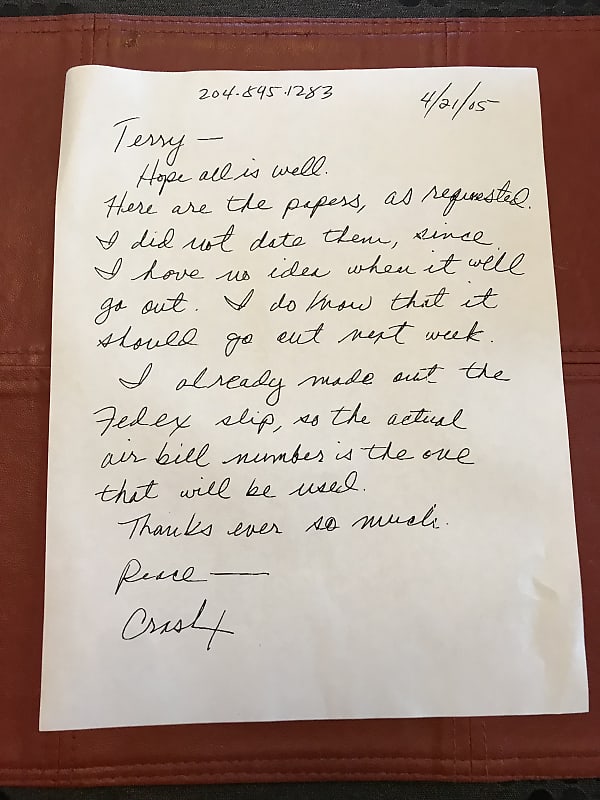 204.895.1283 4/21/05
Terry —
Hope all is well.
Here are the papers, as requested.
I did not date them, since
I have no idea when it will
go out. I do know that it
should go out next week.
I already made out the
Fedex slip, so the actual
air bill number is the one
that will be used.
Thanks ever so much.
Peace —
Crash